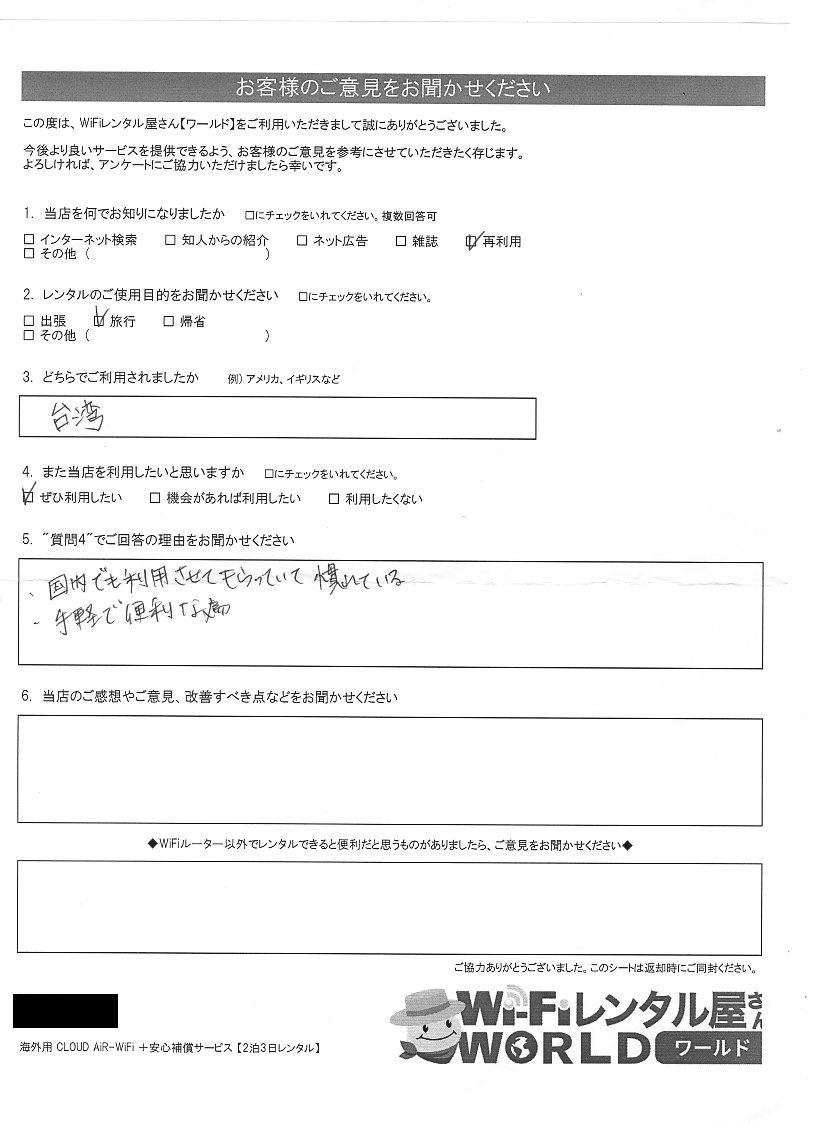 お客様のご意見をお聞かせください
この度は、WiFiレンタル屋さん【ワールド】をご利用いただきまして誠にありがとうございました。
今後より良いサービスを提供できるよう、お客様のご意見を参考にさせていただきたく存じます。
よろしければ、アンケートにご協力いただけましたら幸いです。
1. 当店を何でお知りになりましたか □にチェックをいれてください。複数回答可
□ インターネット検索 □ 知人からの紹介 □ ネット広告 □ 雑誌 ☑ 再利用
□ その他 ( )
2. レンタルのご使用目的をお聞かせください □にチェックをいれてください。
□ 出張 ☑ 旅行 □ 帰省
□ その他 ( )
3. どちらでご利用されましたか 例）アメリカ、イギリスなど
台湾
4. また当店を利用したいと思いますか □にチェックをいれてください。
☑ ぜひ利用したい □ 機会があれば利用したい □ 利用したくない
5. "質問4"でご回答の理由をお聞かせください
・国内でも利用させてもらっていて 慣れている
・手軽で便利な為
6. 当店のご感想やご意見、改善すべき点などをお聞かせください
◆WiFiルーター以外でレンタルできると便利だと思うものがありましたら、ご意見をお聞かせください◆
ご協力ありがとうございました。このシートは返却時にご同封ください。
Wi-Fiレンタル屋さん
WORLD ワールド
海外用 CLOUD AiR-WiFi ＋安心補償サービス【2泊3日レンタル】